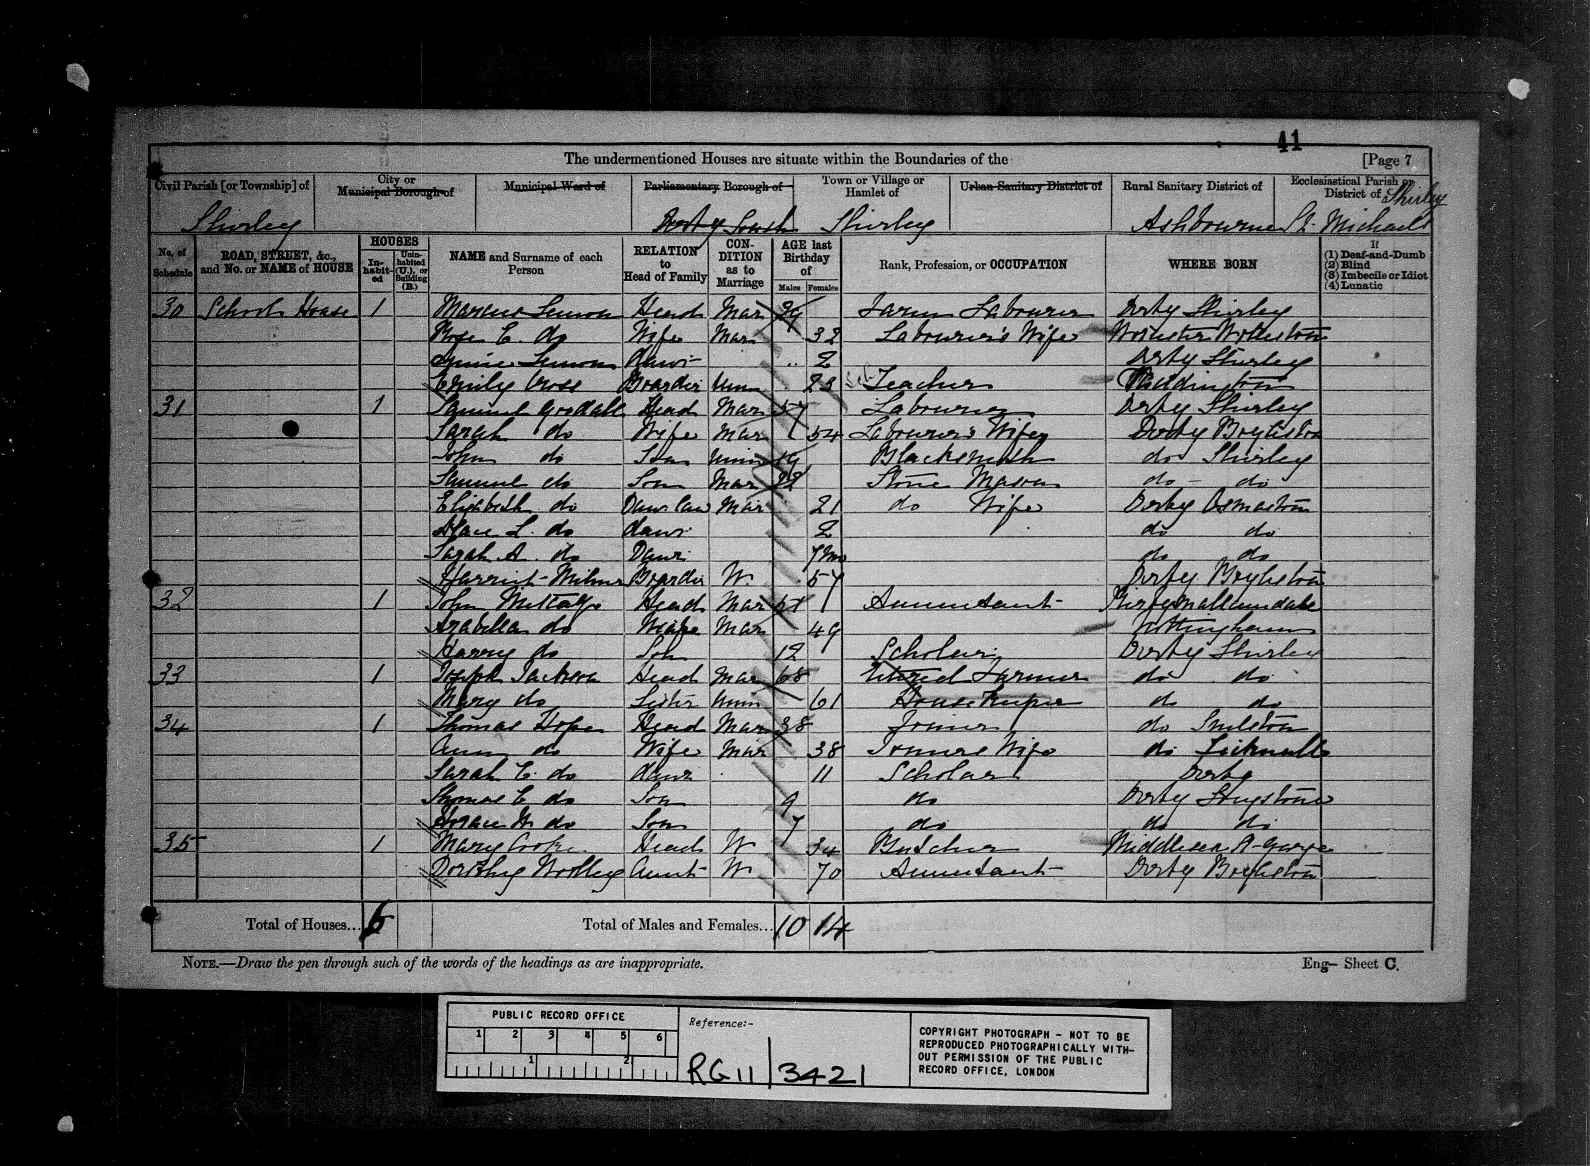 41
The undermentioned Houses are situate within the Boundaries of the
[Page 7
Civil Parish [or Township] of
City or Municipal Borough of
Municipal Ward of
Parliamentary Borough of
Town or Village or Hamlet of
Urban Sanitary District of
Rural Sanitary District of
Ecclesiastical Parish or District of
Shirley
Derby South
Shirley
Ashbourne
Shirley St. Michaels
No. of Schedule
ROAD, STREET, &c., and No. or NAME of HOUSE
HOUSES
In-habit-ed
Unin-habited (U.), or Building (B.)
NAME and Surname of each Person
RELATION to Head of Family
CON-DITION as to Marriage
AGE last Birthday of
Males
Females
Rank, Profession, or OCCUPATION
WHERE BORN
If
(1) Deaf-and-Dumb
(2) Blind
(3) Imbecile or Idiot
(4) Lunatic
30 School House 1 Head Mar 39 Farm Labourer Derby Shirley
Rose E. do Wife Mar 32 Labourer's Wife
Daur 2 Derby Shirley
Emily Cross Boarder Unm 23 Teacher Paddington
31 1 Samuel Goodall Head Mar 57 Labourer Derby Shirley
Sarah do Wife Mar 54 Labourer's Wife Derby Boylestone
John do Son Unm 19 Blacksmith do Shirley
Samuel do Son Mar Stone Mason do do
Elizabeth do Daur law Mar 21 do Wife Derby Osmaston
L. do daur 2 do do
Sarah A. do Daur 7mo do do
Harriet Milner Boarder W. 57 Derby Boylestone
32 1 John Metcalf Head Mar Annuitant
Arabella do Mar 49 Nottingham
Harry do Son 12 Scholar Derby Shirley
33 1 Joseph Jackson Head Mar 68 Retired Farmer do do
Mary do Sister Unm 61 House Keeper do do
34 1 Thomas Hope Head Mar 38 Joiner do
Ann do Wife Mar 38 Joiners Wife do Ticknall
Sarah E. do daur 11 Scholar Derby
Thomas E. do Son 9 do Derby
Horace H. do Son 7 do do do
35 1 Mary Cooke Head W 34 Butcher Middlesex
Dorothy Woolley Aunt W 70 Annuitant Derby Boylestone
Total of Houses... 6
Total of Males and Females... 10 14
NOTE.—Draw the pen through such of the words of the headings as are inappropriate.
Eng— Sheet C.
PUBLIC RECORD OFFICE
1 2 3 4 5 6
1 2
Reference:-
RG 11 / 3421
COPYRIGHT PHOTOGRAPH - NOT TO BE
REPRODUCED PHOTOGRAPHICALLY WITH-
OUT PERMISSION OF THE PUBLIC
RECORD OFFICE, LONDON